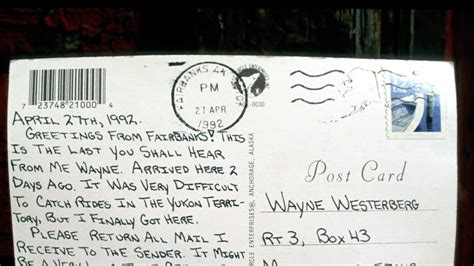 7 23748 21000 4
FAIRBANKS, AK
PM
27 APR
1992
April 27th, 1992.
Greetings from Fairbanks! This
is the last you shall hear
from me Wayne. Arrived here 2
days ago. It was very difficult
to catch rides in the Yukon Terri-
tory, but I finally got here.
Please return all mail I
receive to the sender. It might
be a very
ENTERPRISES, ANCHORAGE, ALASKA
Post Card
Wayne Westerberg
Rt 3, Box 43